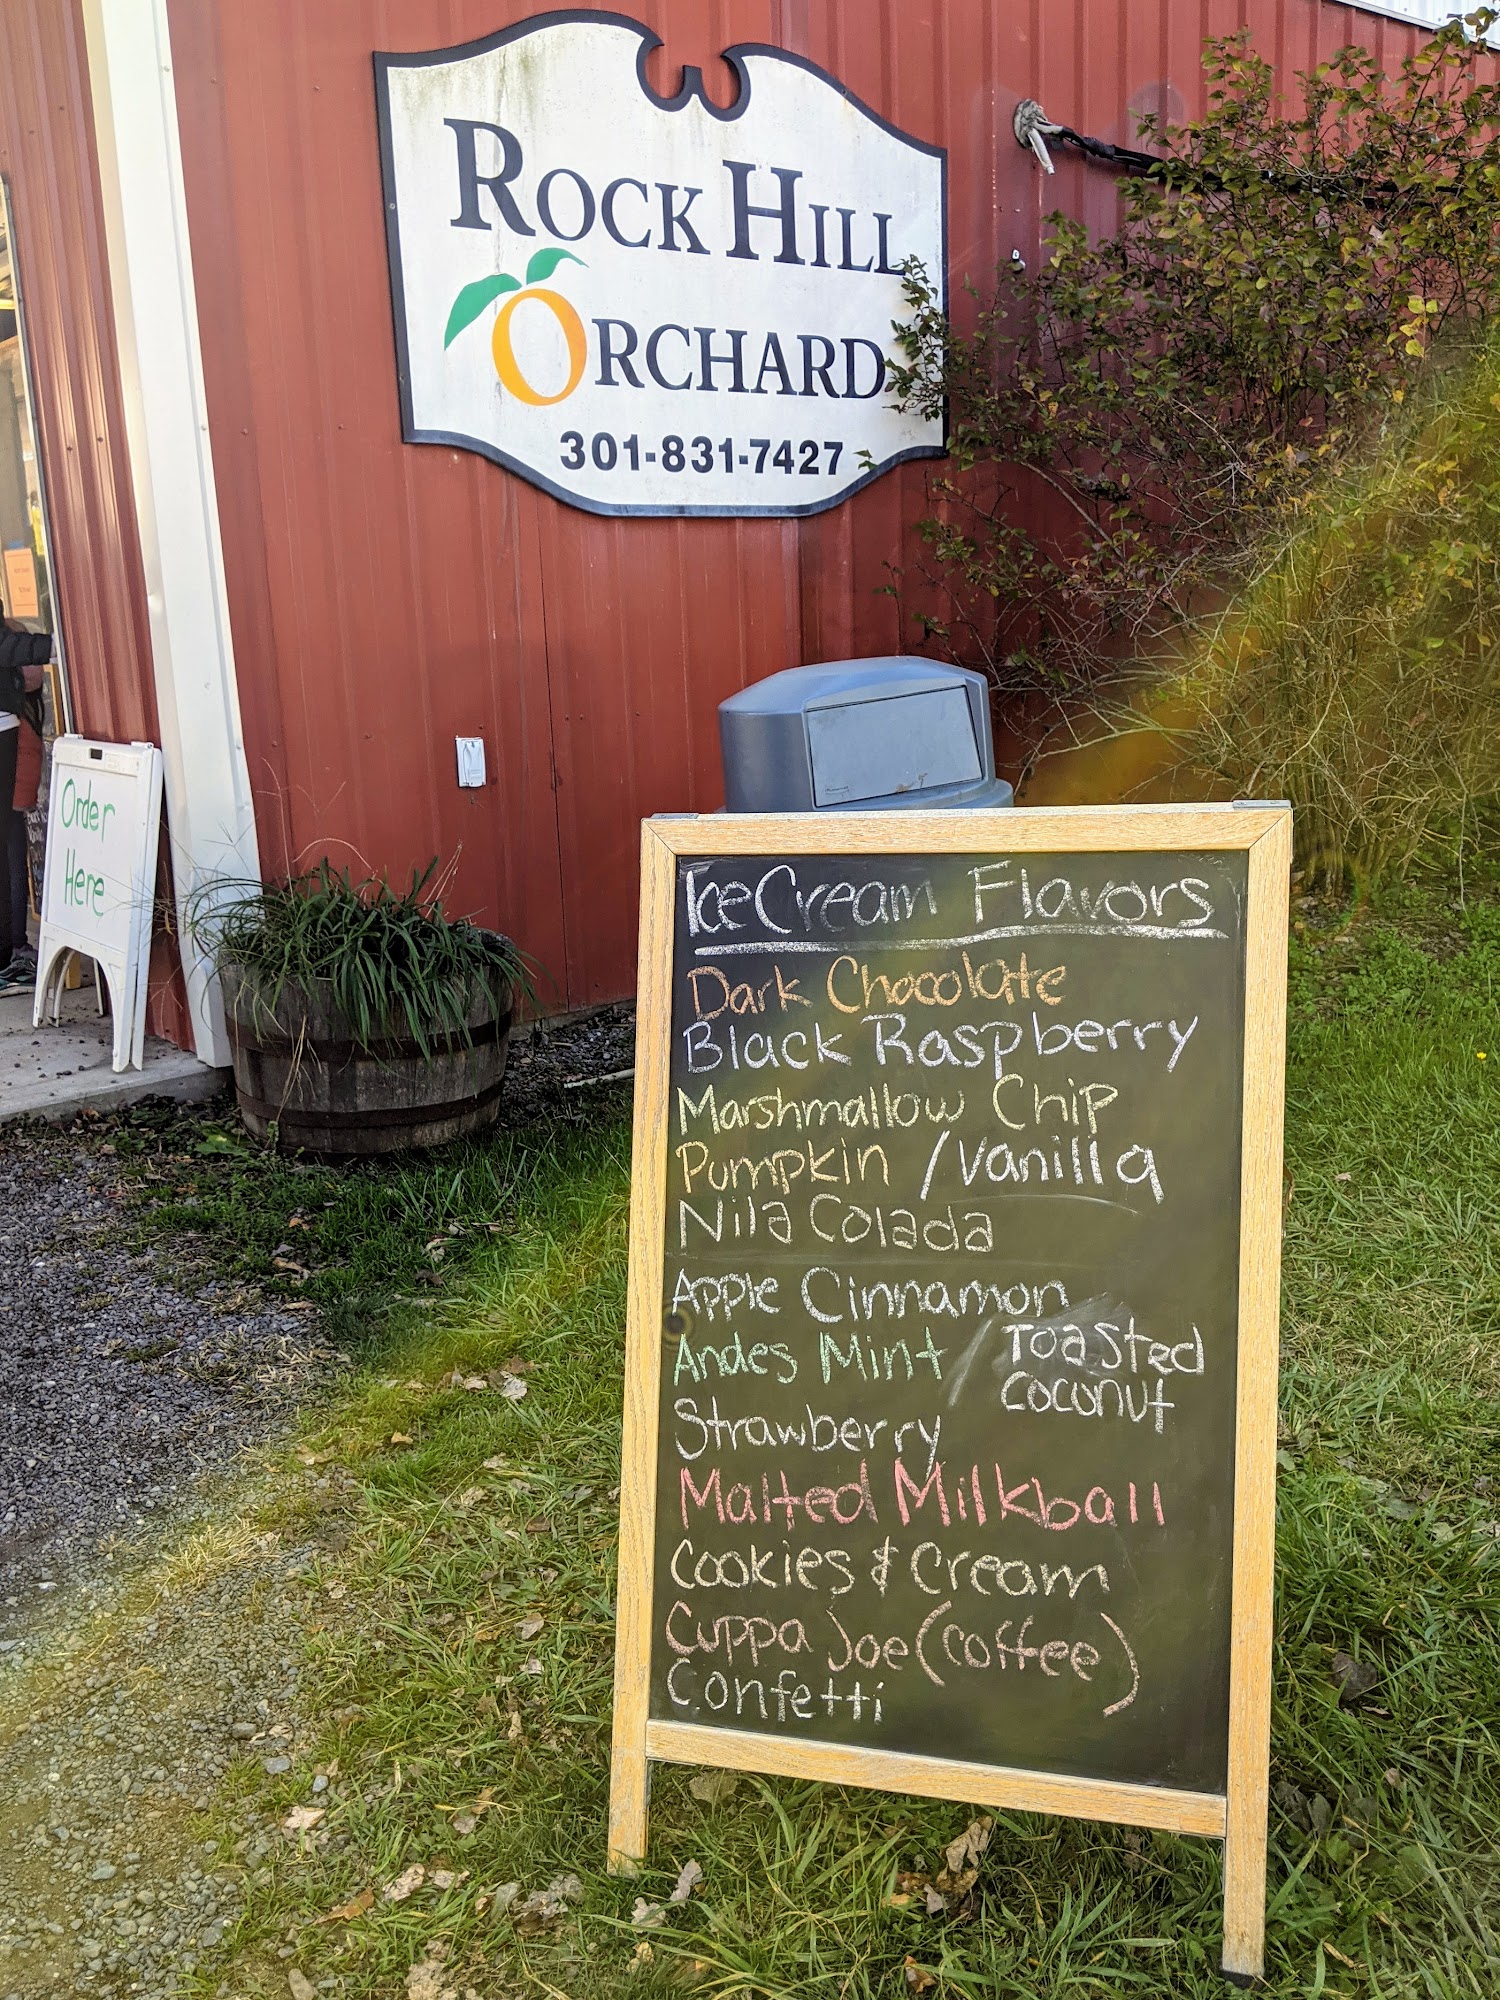 ROCK HILL
ORCHARD
301-831-7427
Order
Here
Ice Cream Flavors
Dark Chocolate
Black Raspberry
Marshmallow Chip
Pumpkin / Vanilla
Nila Colada
Apple Cinnamon
Andes Mint
Toasted
Coconut
Strawberry
Malted Milkball
Cookies & Cream
Cuppa Joe (coffee)
Confetti